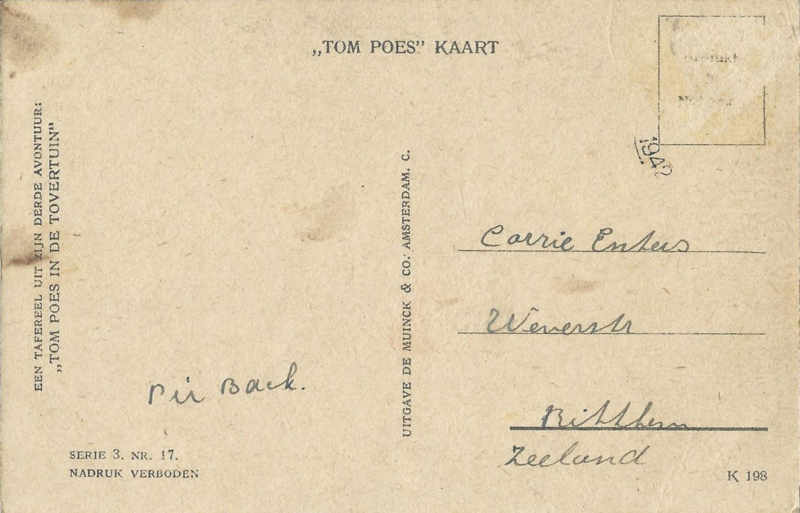 „TOM POES” KAART
1942
EEN TAFEREEL UIT ZIJN DERDE AVONTUUR:
„TOM POES IN DE TOVERTUIN”
UITGAVE DE MUINCK & CO. AMSTERDAM. C.
Corrie Enters
Weverstr
Ritthem
Zeeland
Back.
SERIE 3. NR. 17.
NADRUK VERBODEN
K 198